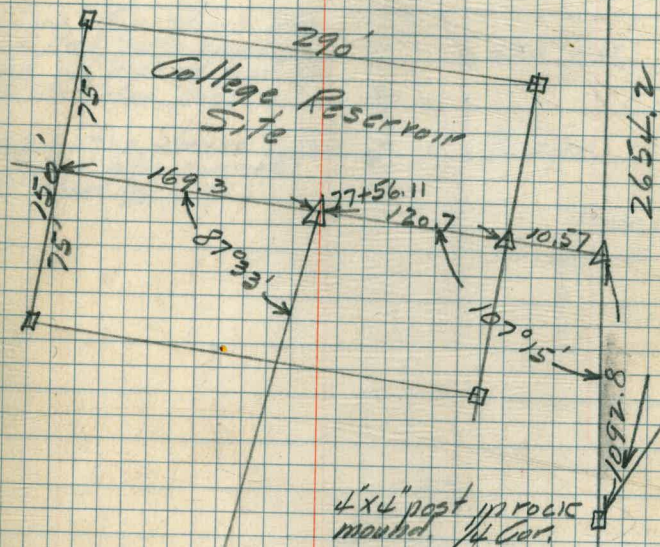 290'
College Reservoir
Site
75'
150'
75'
169.3
77+56.11
120.7
10.57
2654.2
87°33'
107°15'
1092.8
4"x4" post in rock
mound. 1/4 Cor.